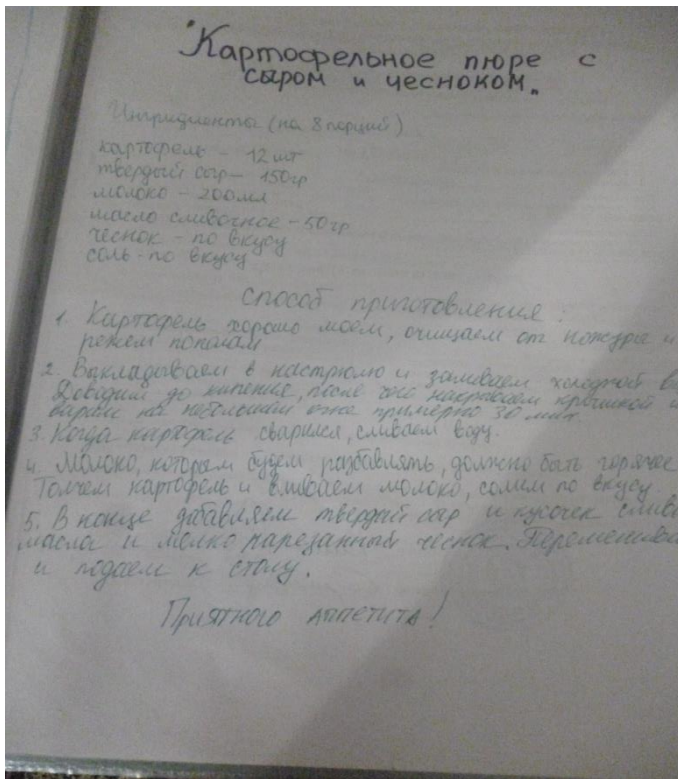 "Картофельное пюре с
сыром и чесноком"
Ингридиенты (на 8 порций)
картофель - 12 шт
твердый сыр - 150гр
молоко - 200мл
масло сливочное - 50гр
чеснок - по вкусу
соль - по вкусу
Способ приготовления:
1. Картофель хорошо моем, очищаем от кожуры и
режем пополам
2. Выкладываем в кастрюлю и заливаем холодной в
Доводим до кипения, после чего накрываем крышкой и
варим на небольшом огне примерно 30 мин.
3. Когда картофель сварился, сливаем воду.
4. Молоко, которым будем разбавлять, должно быть горячее
Толчем картофель и вливаем молоко, солим по вкусу.
5. В конце добавляем твердый сыр и кусочек слив
масла и мелко нарезанный чеснок. Перемешива
и подаем к столу.
Приятного аппетита!